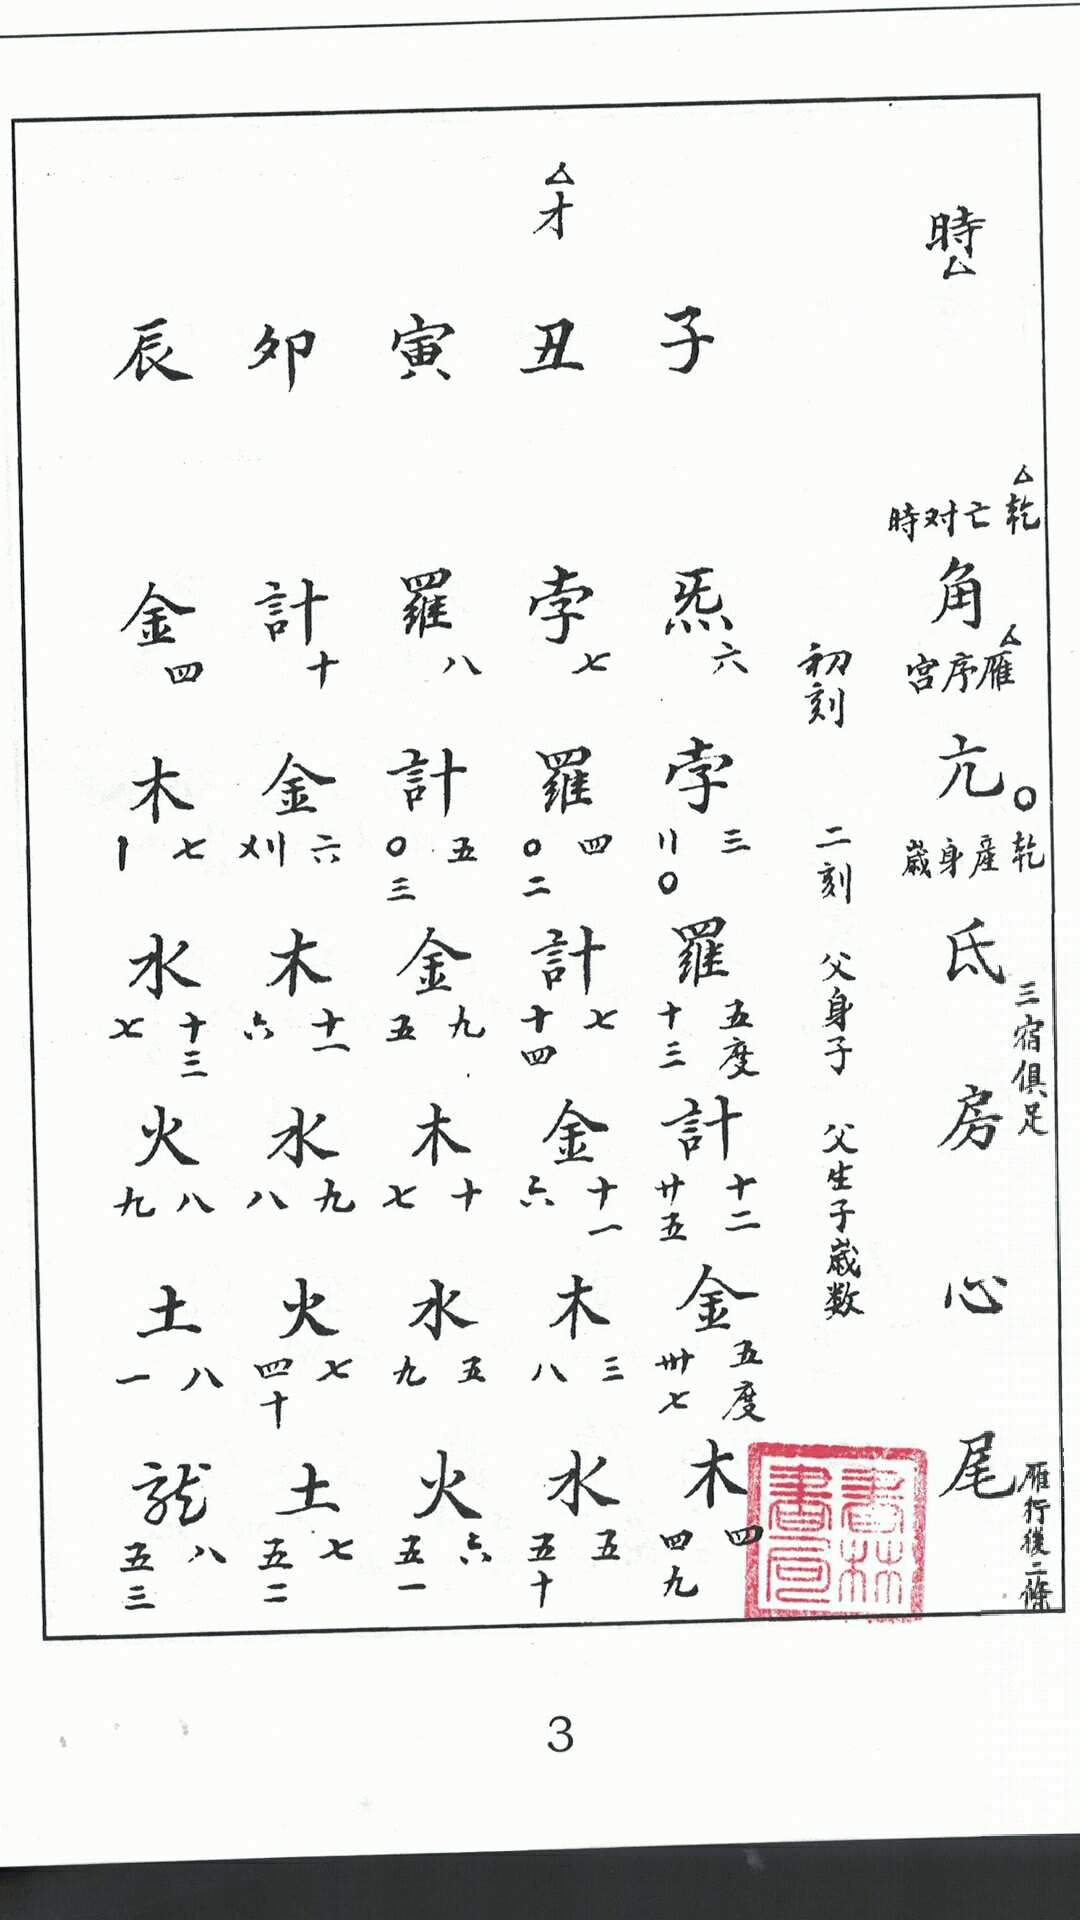 時△
△乾亡对時
角
△雁序宮
亢○
乾產身歲
氐
三宿俱足
房
心
尾
雁行後二條
初刻
二刻 父身子 父生子歲数
子
炁 六
孛 三 〢〇
羅 五度 十三
計 十二 廿五
金 五度 卅七
木 四 四九
△才
丑
孛 七
羅 四 〇二
計 七 十四
金 十一 六
木 三 八
水 五 五十
寅
羅 八
計 五 〇三
金 九 五
木 十 七
水 五 九
火 六 五一
卯
計 十
金 六 〤〢
木 十一 六
水 九 八
火 七 四十
土 七 五二
辰
金 四
木 七 〡
水 十三 七
火 八 九
土 八 一
龙 八 五三
書林書局
3